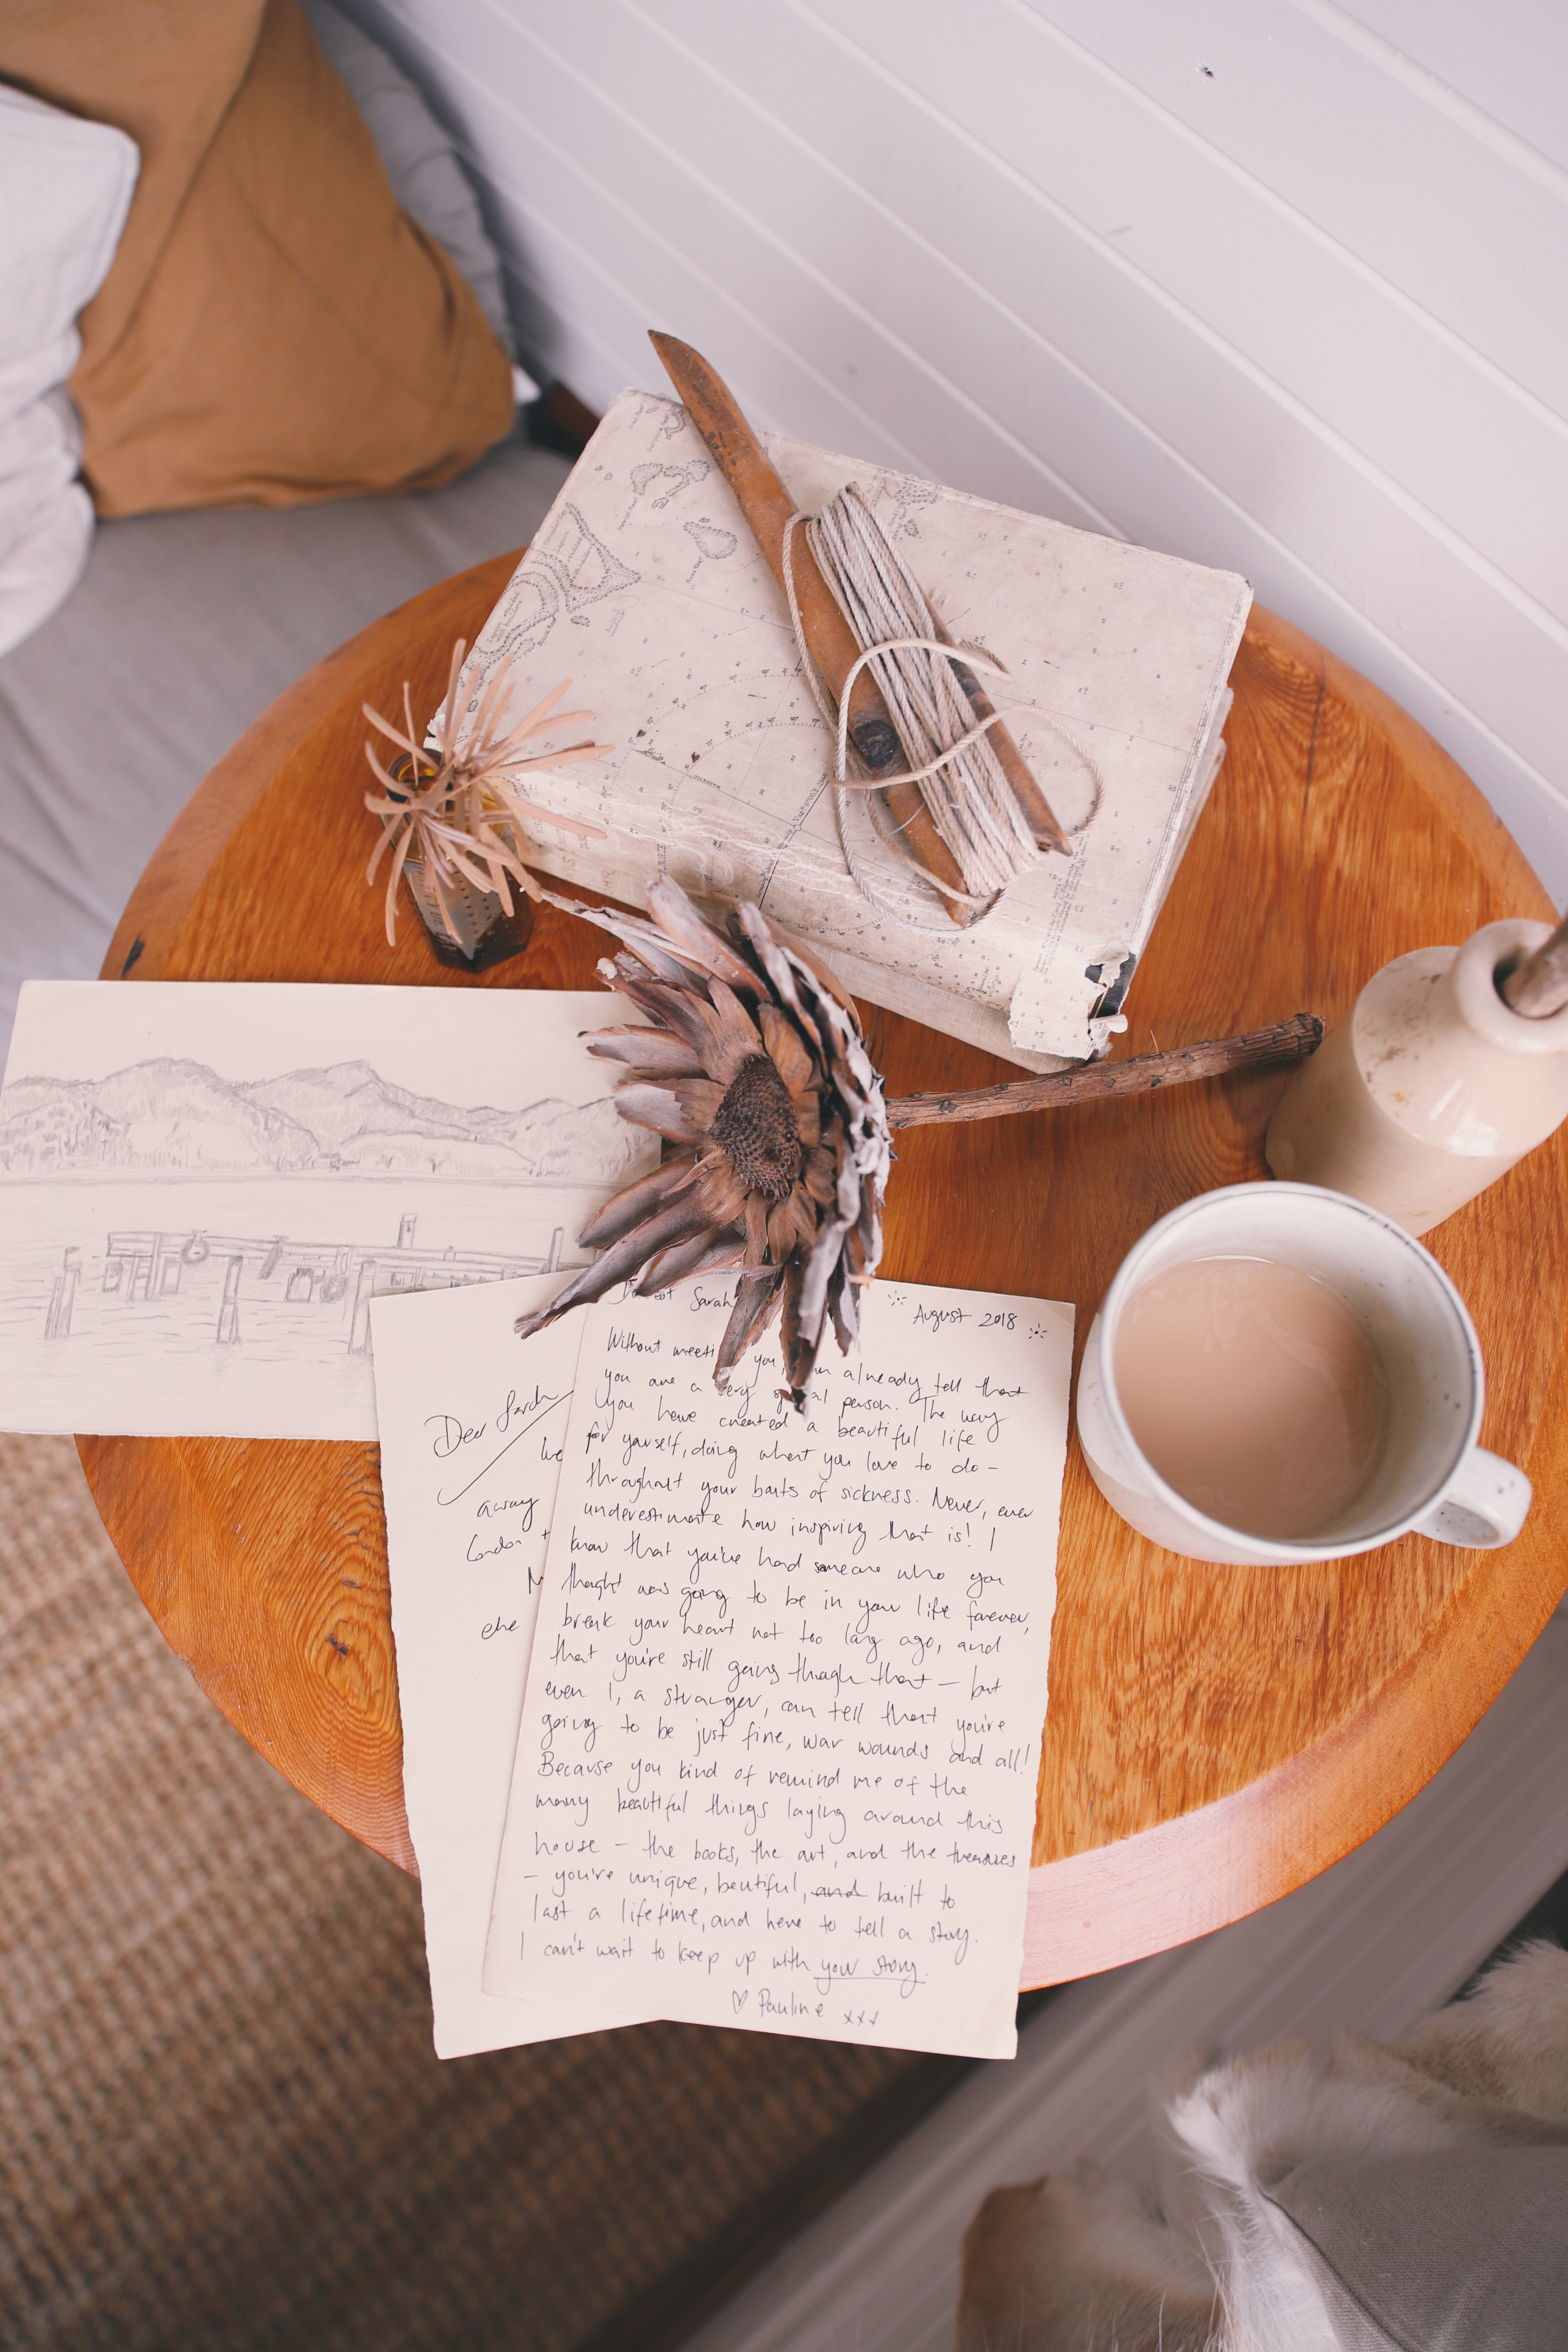 Sarah
August 2018
Without you, already tell that
you are a person. The way
you have created a beautiful life
for yourself, doing what you love to do -
throughout your bouts of sickness. Never, ever
underestimate how inspiring that is! I
know that you've had someone who you
thought was going to be in your life forever,
break your heart not too long ago, and
that you're still going though that - but
even I, a stranger, can tell that you're
going to be just fine, war wounds and all!
Because you kind of remind me of the
many beautiful things laying around this
house - the books, the art, and the treasures
- you're unique, beutiful, and built to
last a lifetime, and here to tell a story.
I can't wait to keep up with your story.
♡ Pauline xxx
Dear Sarah
away
London